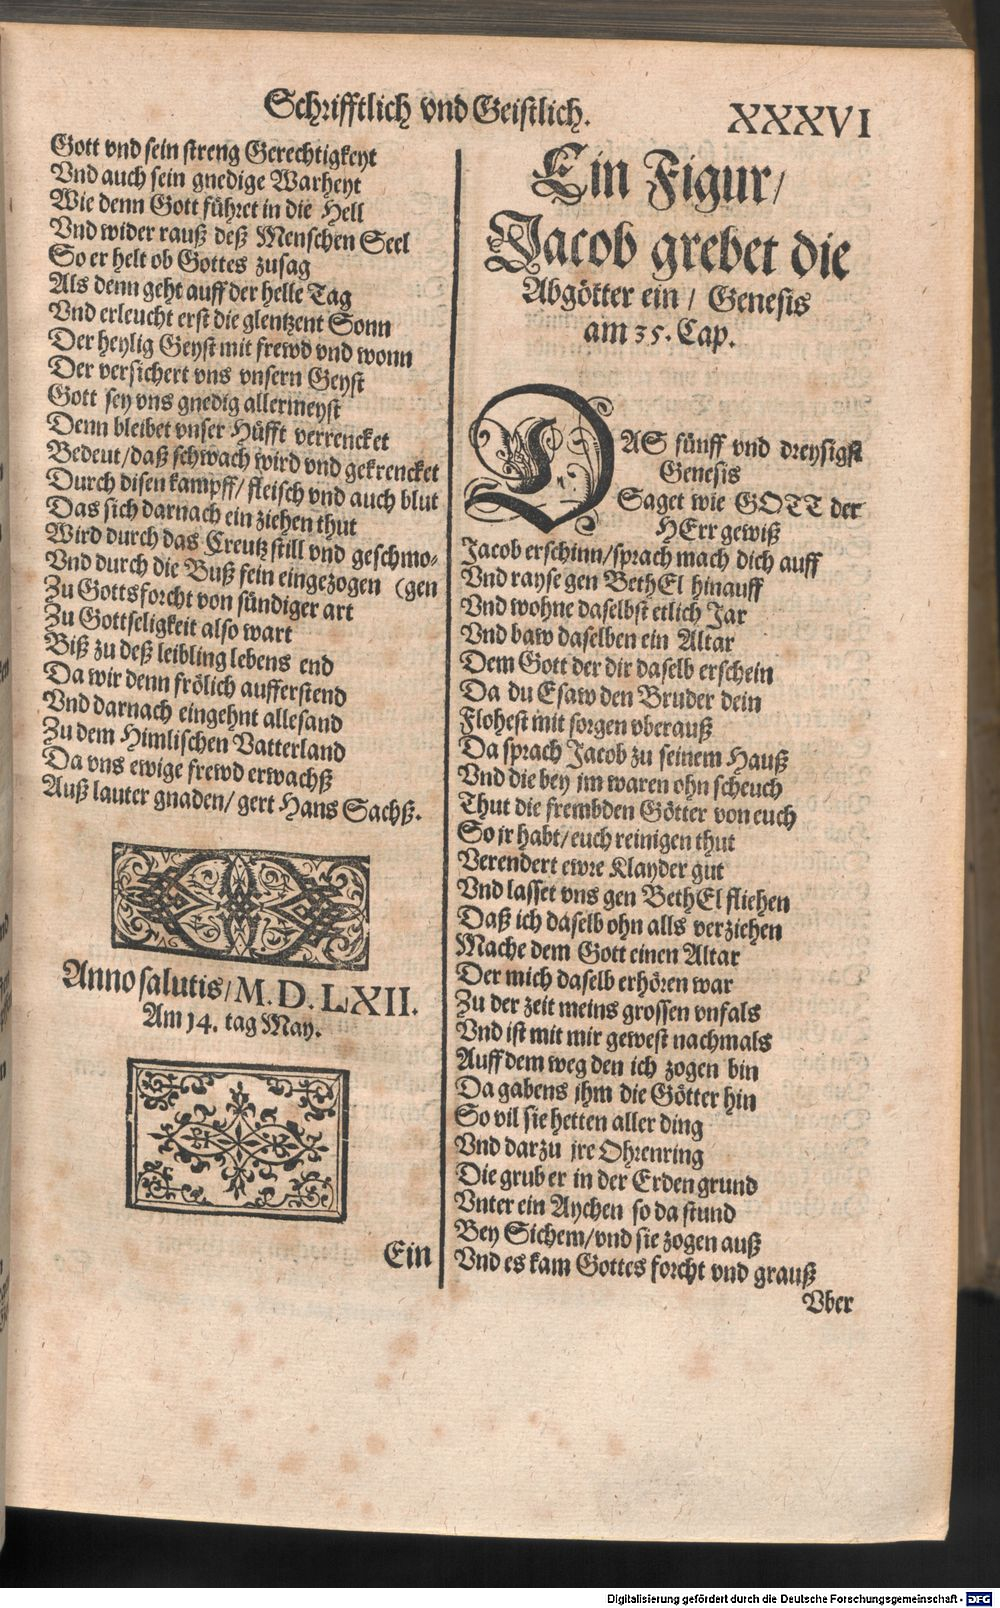 Schrifftlich vnd Geistlich.
XXXVI
Gott vnd sein streng Gerechtigkeyt
Vnd auch sein gnedige Warheyt
Wie denn Gott führet in die Hell
Vnd wider rauß deß Menschen Seel
So er helt ob Gottes zusag
Als denn geht auff der helle Tag
Vnd erleucht erst die glentzent Sonn
Der heylig Geyst mit frewd vnd wonn
Der versichert vns vnsern Geyst
Gott sey vns gnedig allermeyst
Denn bleibet vnser Hüfft verrencket
Bedeut/daß schwach wird vnd gekrencket
Durch disen kampff/ fleisch vnd auch blut
Das sich darnach ein ziehen thut
Wird durch das Creutz still vnd geschmo-
Vnd durch die Buß fein eingezogen (gen
Zu Gottsforcht von sündiger art
Zu Gottseligkeit also wart
Biß zu deß leibling lebens end
Da wir denn frölich aufferstend
Vnd darnach eingehnt allesand
Zu dem Himlischen Vatterland
Da vns ewige frewd erwachß
Auß lauter gnaden/ gert Hans Sachß.
Anno salutis/ M. D. LXII.
Am 14. tag May.
Ein
Ein Figur/
Jacob grebet die
Abgötter ein/ Genesis
am 35. Cap.
DAS fünff vnd dreysigst
Genesis
Saget wie GOTT der
HErr gewiß
Jacob erschinn/sprach mach dich auff
Vnd rayse gen BethEl hinauff
Vnd wohne daselbst etlich Jar
Vnd baw daselben ein Altar
Dem Gott der dir daselb erschein
Da du Esaw den Bruder dein
Flohest mit sorgen vberauß
Da sprach Jacob zu seinem Hauß
Vnd die bey jm waren ohn scheuch
Thut die frembden Götter von euch
So jr habt/euch reinigen thut
Verendert ewre Klayder gut
Vnd lasset vns gen BethEl fliehen
Daß ich daselb ohn alls verziehen
Mache dem Gott einen Altar
Der mich daselb erhören war
Zu der zeit meins grossen vnfals
Vnd ist mit mir gewest nachmals
Auff dem weg den ich zogen bin
Da gabens jhm die Götter hin
So vil sie hetten aller ding
Vnd darzu jre Ohrenring
Die grub er in der Erden grund
Vnter ein Aychen so da stund
Bey Sichem/vnd sie zogen auß
Vnd es kam Gottes forcht vnd grauß
Vber
Digitalisierung gefördert durch die Deutsche Forschungsgemeinschaft - DFG